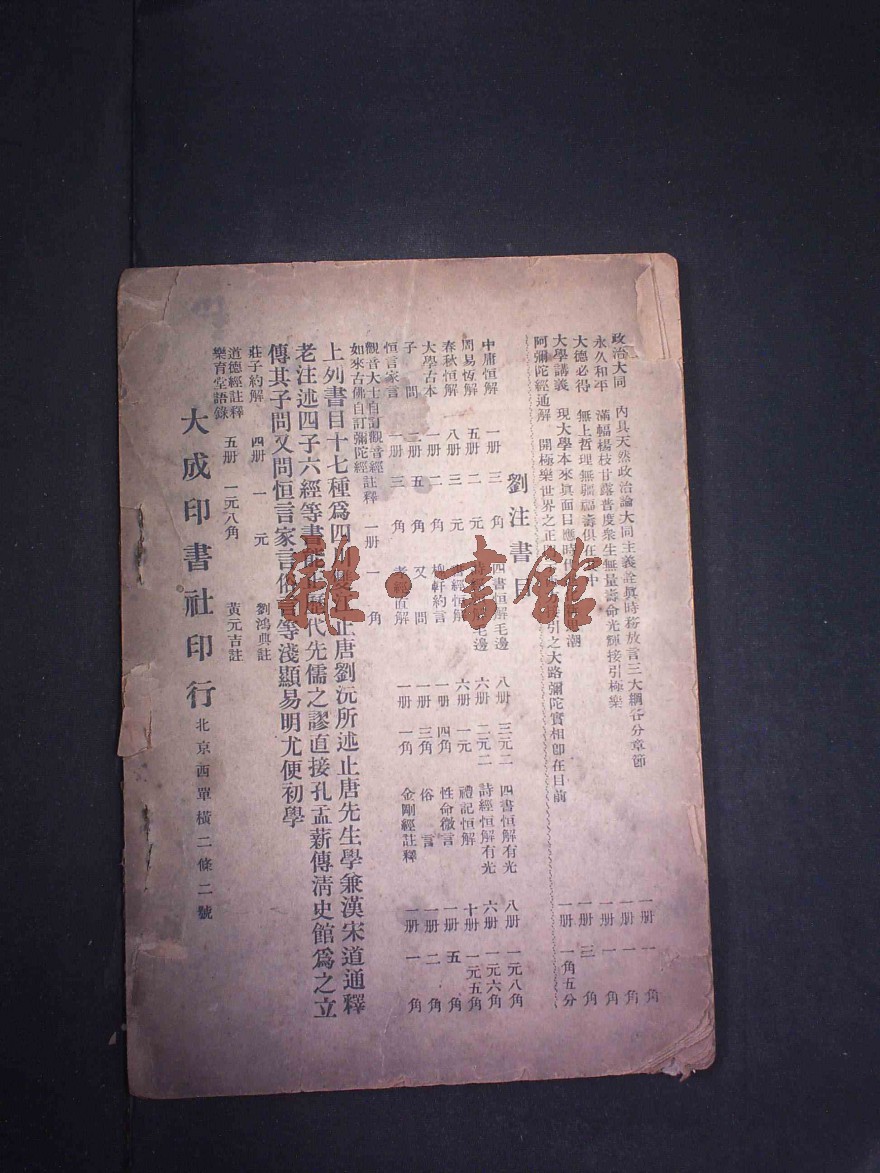 政治大同 內具天然政治論大同主義詮眞時務放言三大綱各分章節 一册 一角
永久和平 滿幅楊枝甘露普度衆生無量壽命光輝接引極樂 一册 一角
大德必得 無上哲理無疆福壽俱在 中 一册 一角
大學講義 現大學本來眞面目應時代 潮 一册 三角
阿彌陀經通解 開極樂世界之正 引之大路彌陀實相卽在目前 一册 一角五分
劉注書目
四書恒解毛邊 八册 三元二 四書恒解有光 八册 一元八角
中庸恒解 一册 三角 毛邊 六册 二元二 詩經恒解有光 六册 一元六角
周易恆解 五册 二元 經恒解 六册 一元 禮記恒解 十册 一元五角
春秋恒解 八册 三元 槐軒約言 一册 四角 性命微言 一册 五角
大學古本 一册 二角 又問 一册 三角 俗言 一册 二角
子問 二册 五角 孝經直解 一册 一角 金剛經註釋 一册 一角
恒言家言 一册 三角
觀音大士自訂觀音經註釋 一册 一角
如來古佛自訂彌陀經
上列書目十七種爲四川雙江止唐劉沅所述止唐先生學兼漢宋道通釋
老注述四子六經等書能正歷代先儒之謬直接孔孟薪傳淸史館爲之立
傳其子問又問恒言家言俗言等淺顯易明尤便初學
莊子約解 四册 一元 劉鴻典註
道德經註釋
樂育堂語錄 五册 一元八角 黃元吉註
大成印書社印行 北京西單橫二條二號
雜·書館